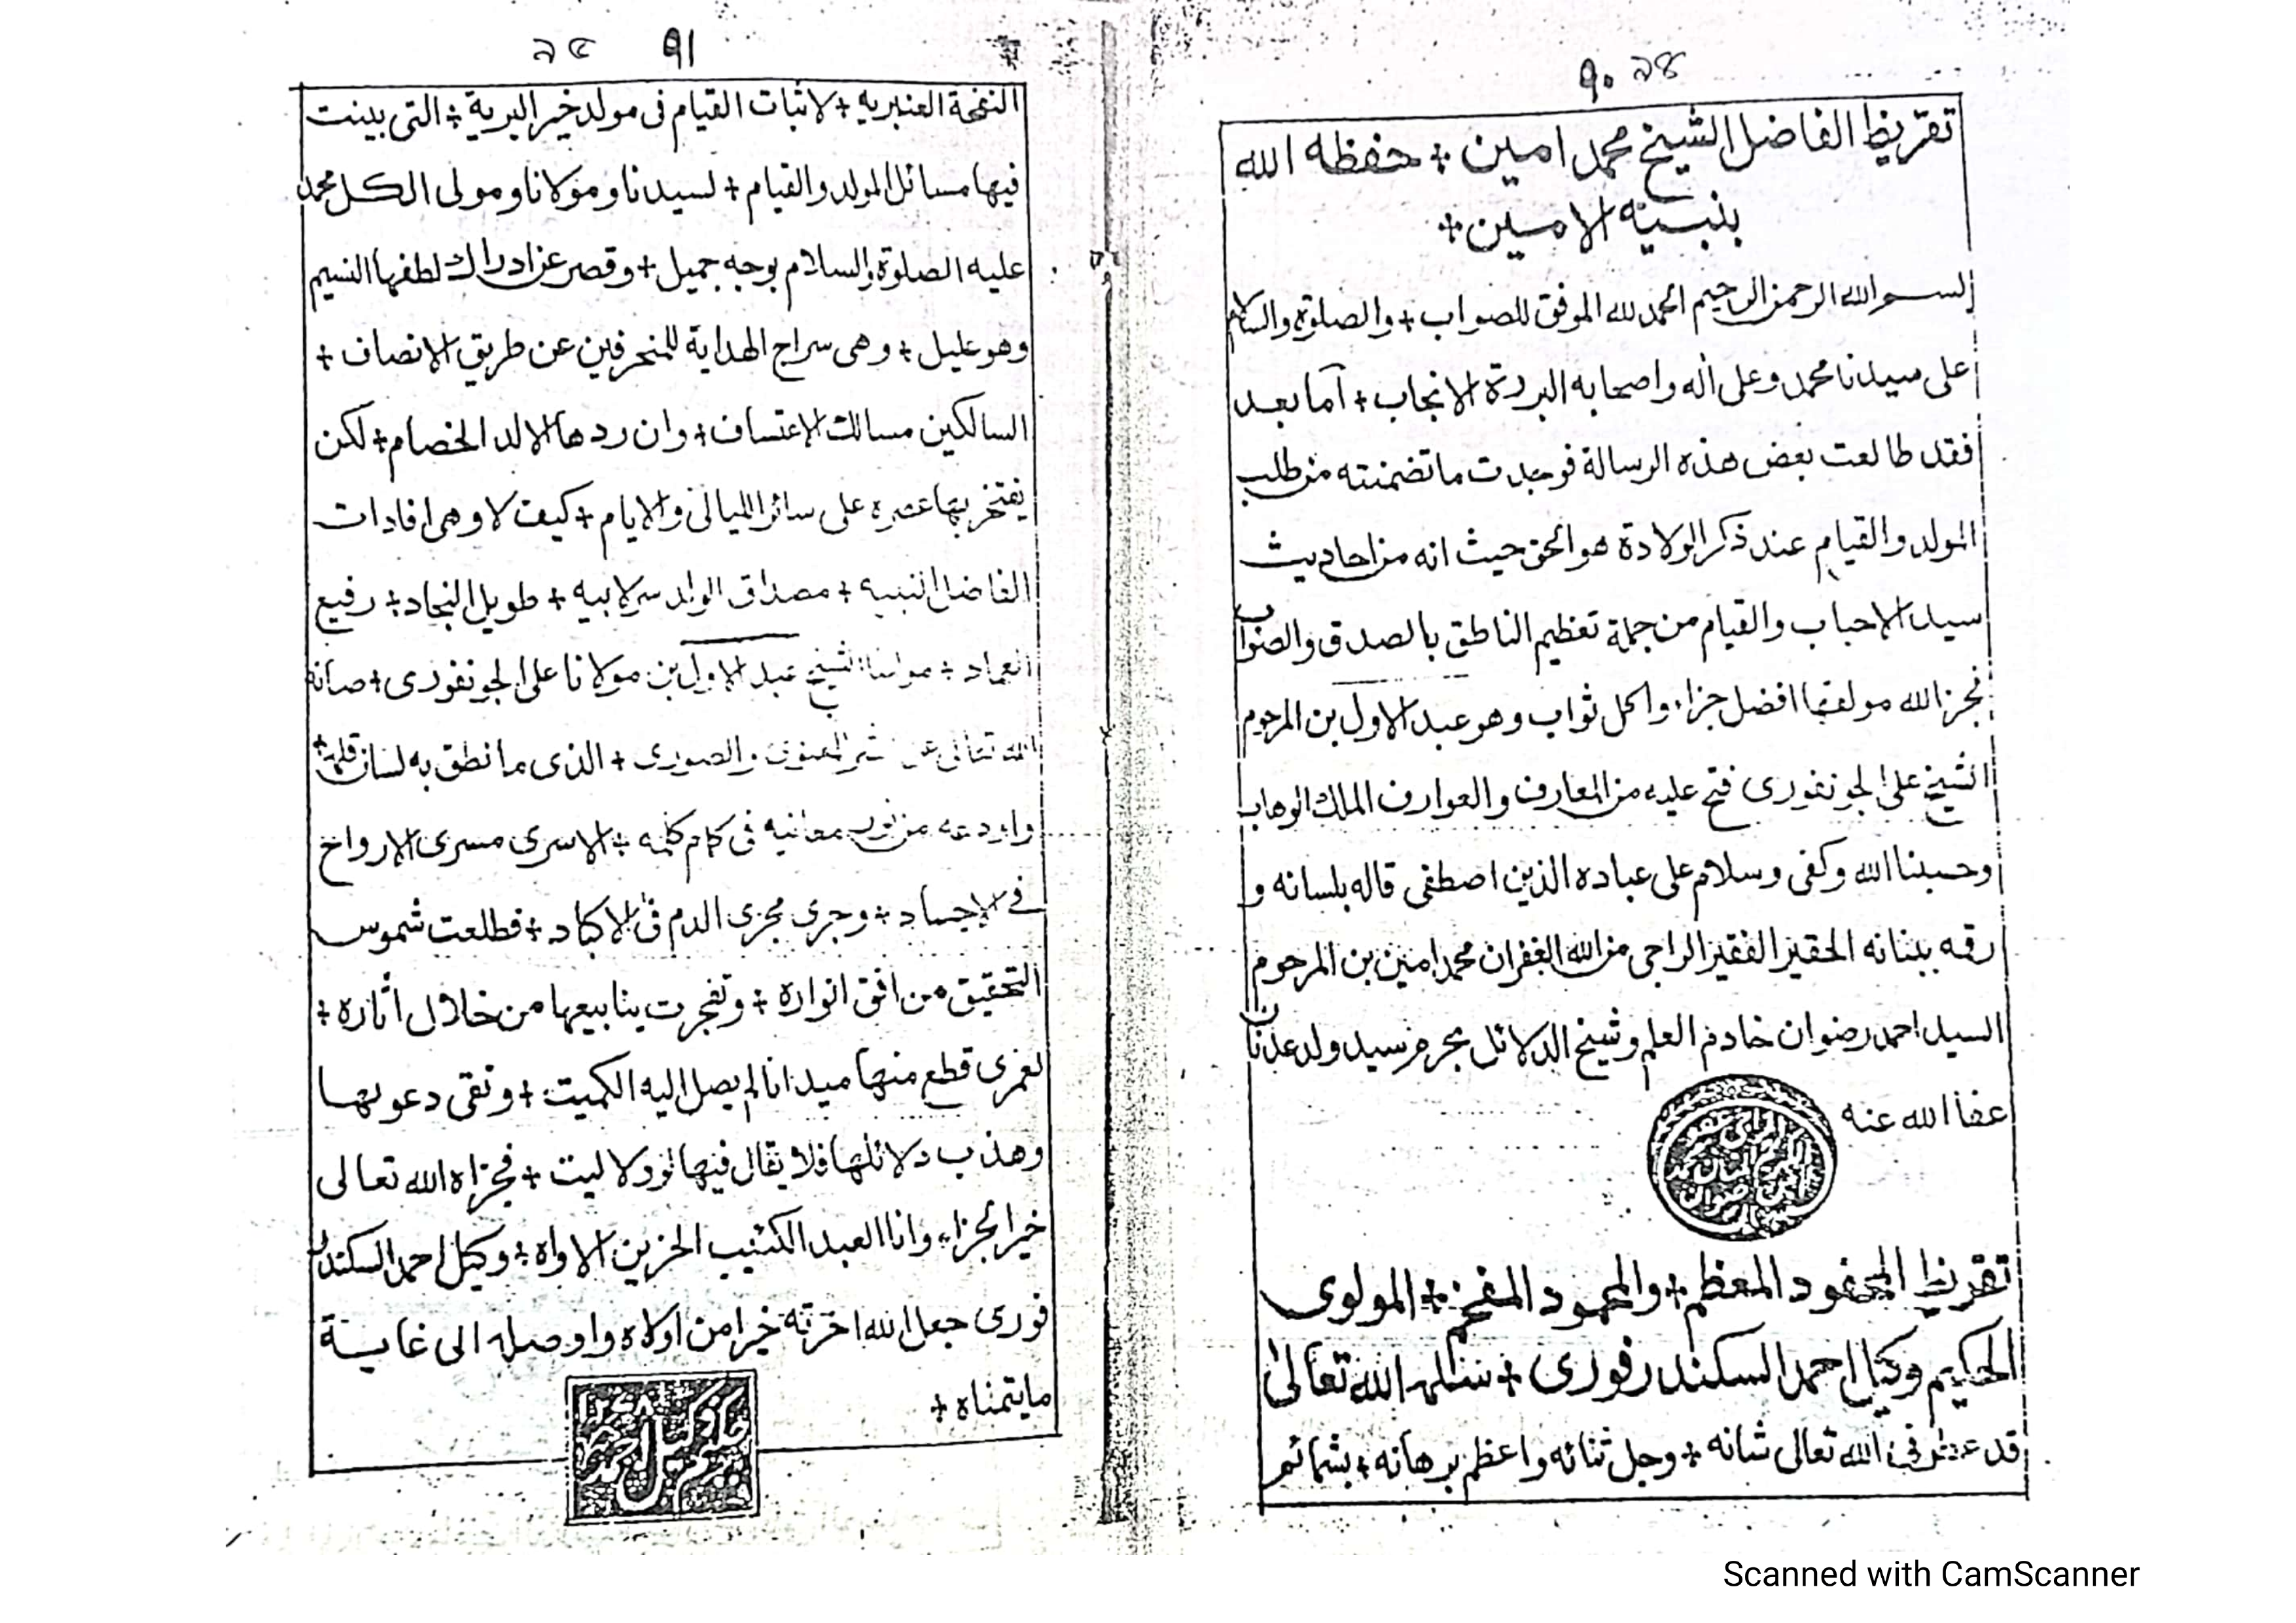 ٩٠ ৯৪
تقريظ الفاضل الشيخ محمد امين + حفظه الله
بنبيه الامين +
بسم الله الرحمن الرحيم الحمد لله الموفق للصواب + والصلوة والسلام
على سيدنا محمد وعلى اله واصحابه البررة الانجاب + آما بعد
فقد طالعت بعض هذه الرسالة فوجدت ما تضمنته من طلب
المولد والقيام عند ذكر الولادة هو الحق حيث انه من احاديث
سيد الاحباب والقيام من جملة تعظيم الناطق بالصدق والصواب
فجزا الله مولفها افضل جزاء واكمل ثواب وهو عبد الاول بن المرحوم
الشيخ على الجونفورى فتح عليه من المعارف والعوارف الملك الوهاب
وحسبنا الله وكفى وسلام على عباده الذين اصطفى قاله بلسانه و
رقمه ببنانه الحقير الفقير الراجى من الله الغفران محمد امين بن المرحوم
السيد احمد رضوان خادم العلم وشيخ الدلائل بحرم سيد ولد عدنان
عفا الله عنه
تقريظ المعظم + والمحمود المفخم + المولوى
الحكيم وكيل احمد السكندرفورى + سلمه الله تعالى
قد عطرنى الله تعالى شانه + وجل ثنائه واعظم برهانه + بشمائم
٩١ ৯৫
النفحة العنبريه + لاثبات القيام فى مولد خير البرية + التى بينت
فيها مسائل المولد والقيام + لسيدنا ومولانا ومولى الكل محمد
عليه الصلوة والسلام بوجه جميل + وقصر عن ادراك لطفها النسيم
وهو عليل + وهى سراج الهداية للمنحرفين عن طريق الانصاف +
السالكين مسالك الاعتساف + وان ردها الالد الخصام + لكن
يفتخر بها عصره على سائر الليالى والايام + كيف لا وهى افادات
الفاضل النبيه + مصداق الولد سر لابيه + طويل النجاد + رفيع
العماد + مولانا الشيخ عبد الاول بن مولانا على الجونفورى + صانه
الله تعالى عن شر المعنوى والصورى + الذى ما نطق به لسان قلمه +
واودعه من نور معانيه فى كمام كلمه + الا سرى مسرى الارواح
فى الاجساد + وجرى مجرى الدم فى الاكباد + فطلعت شموس
التحقيق من افق انواره + وتفجرت ينابيعها من خلال اثاره +
لعمرى قطع منها ميدانا لم يصل اليه الكميت + ونقى دعويها
وهذب دلائلها فلا يقال فيها لو ولا ليت + فجزاه الله تعالى
خير الجزاء وانا العبد الكئيب الحزين الاواه + وكيل احمد السكندر
فورى جعل الله اخرته خيرا من اولاه واوصله الى غاية
ما يتمناه +
Scanned with CamScanner